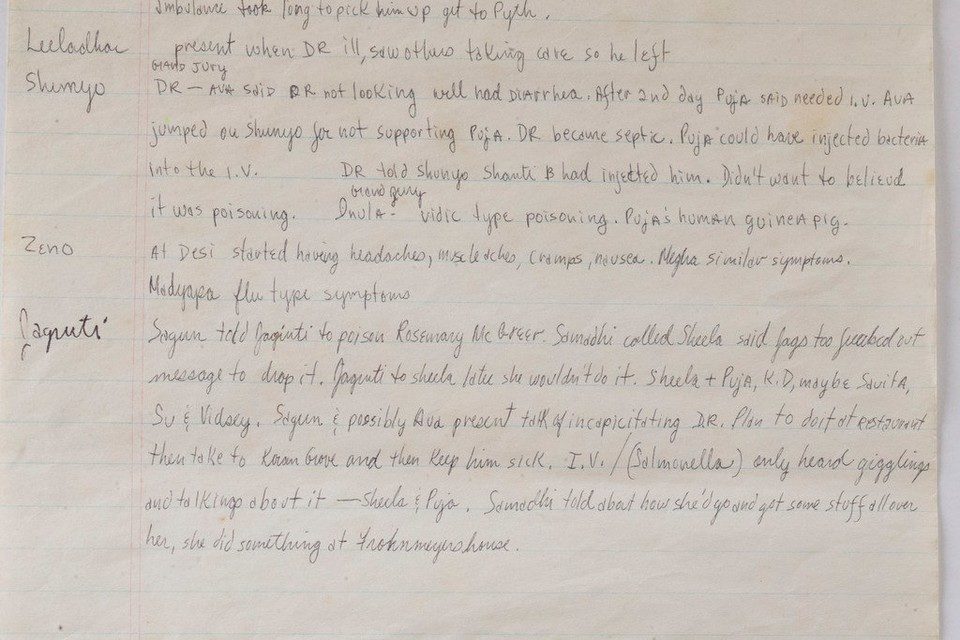 Ambulance took long to pick him up get to Pyth.
Leeladhar present when DR ill, saw others taking care so he left
Grand Jury
Shunyo DR — AVA said DR not looking well had Diarrhea. After 2nd day Puja said needed I.V. AVA
jumped on Shunyo for not supporting Puja. DR became septic. Puja could have injected bacteria
into the I.V. DR told Shunyo Shanti B had injected him. Didn't want to believe
Grand jury
it was poisoning. Anula - vidic type poisoning. Puja's human guinea pig.
Zeno At Desi started having headaches, muscle aches, cramps, nausea. Megha similar symptoms.
Madyapa flu type symptoms
Jaguti Sagun told Jaguti to poison Rosemary McGreer. Samadhi called Sheela said Jags too freaked out
message to drop it. Jaguti to sheela later she wouldn't do it. Sheela + Puja, K.D, maybe Savita,
Su & Vidsey. Sagun & possibly Ava present talk of incapicitating D.R. Plan to do it at restaurant
then take to Koran Grove and then keep him sick. I.V. / (Salmonella) only heard gigglings
and talkings about it — Sheela & Puja. Samadhi told about how she'd go and got some stuff all over
her, she did something at Frohnmeyers house.